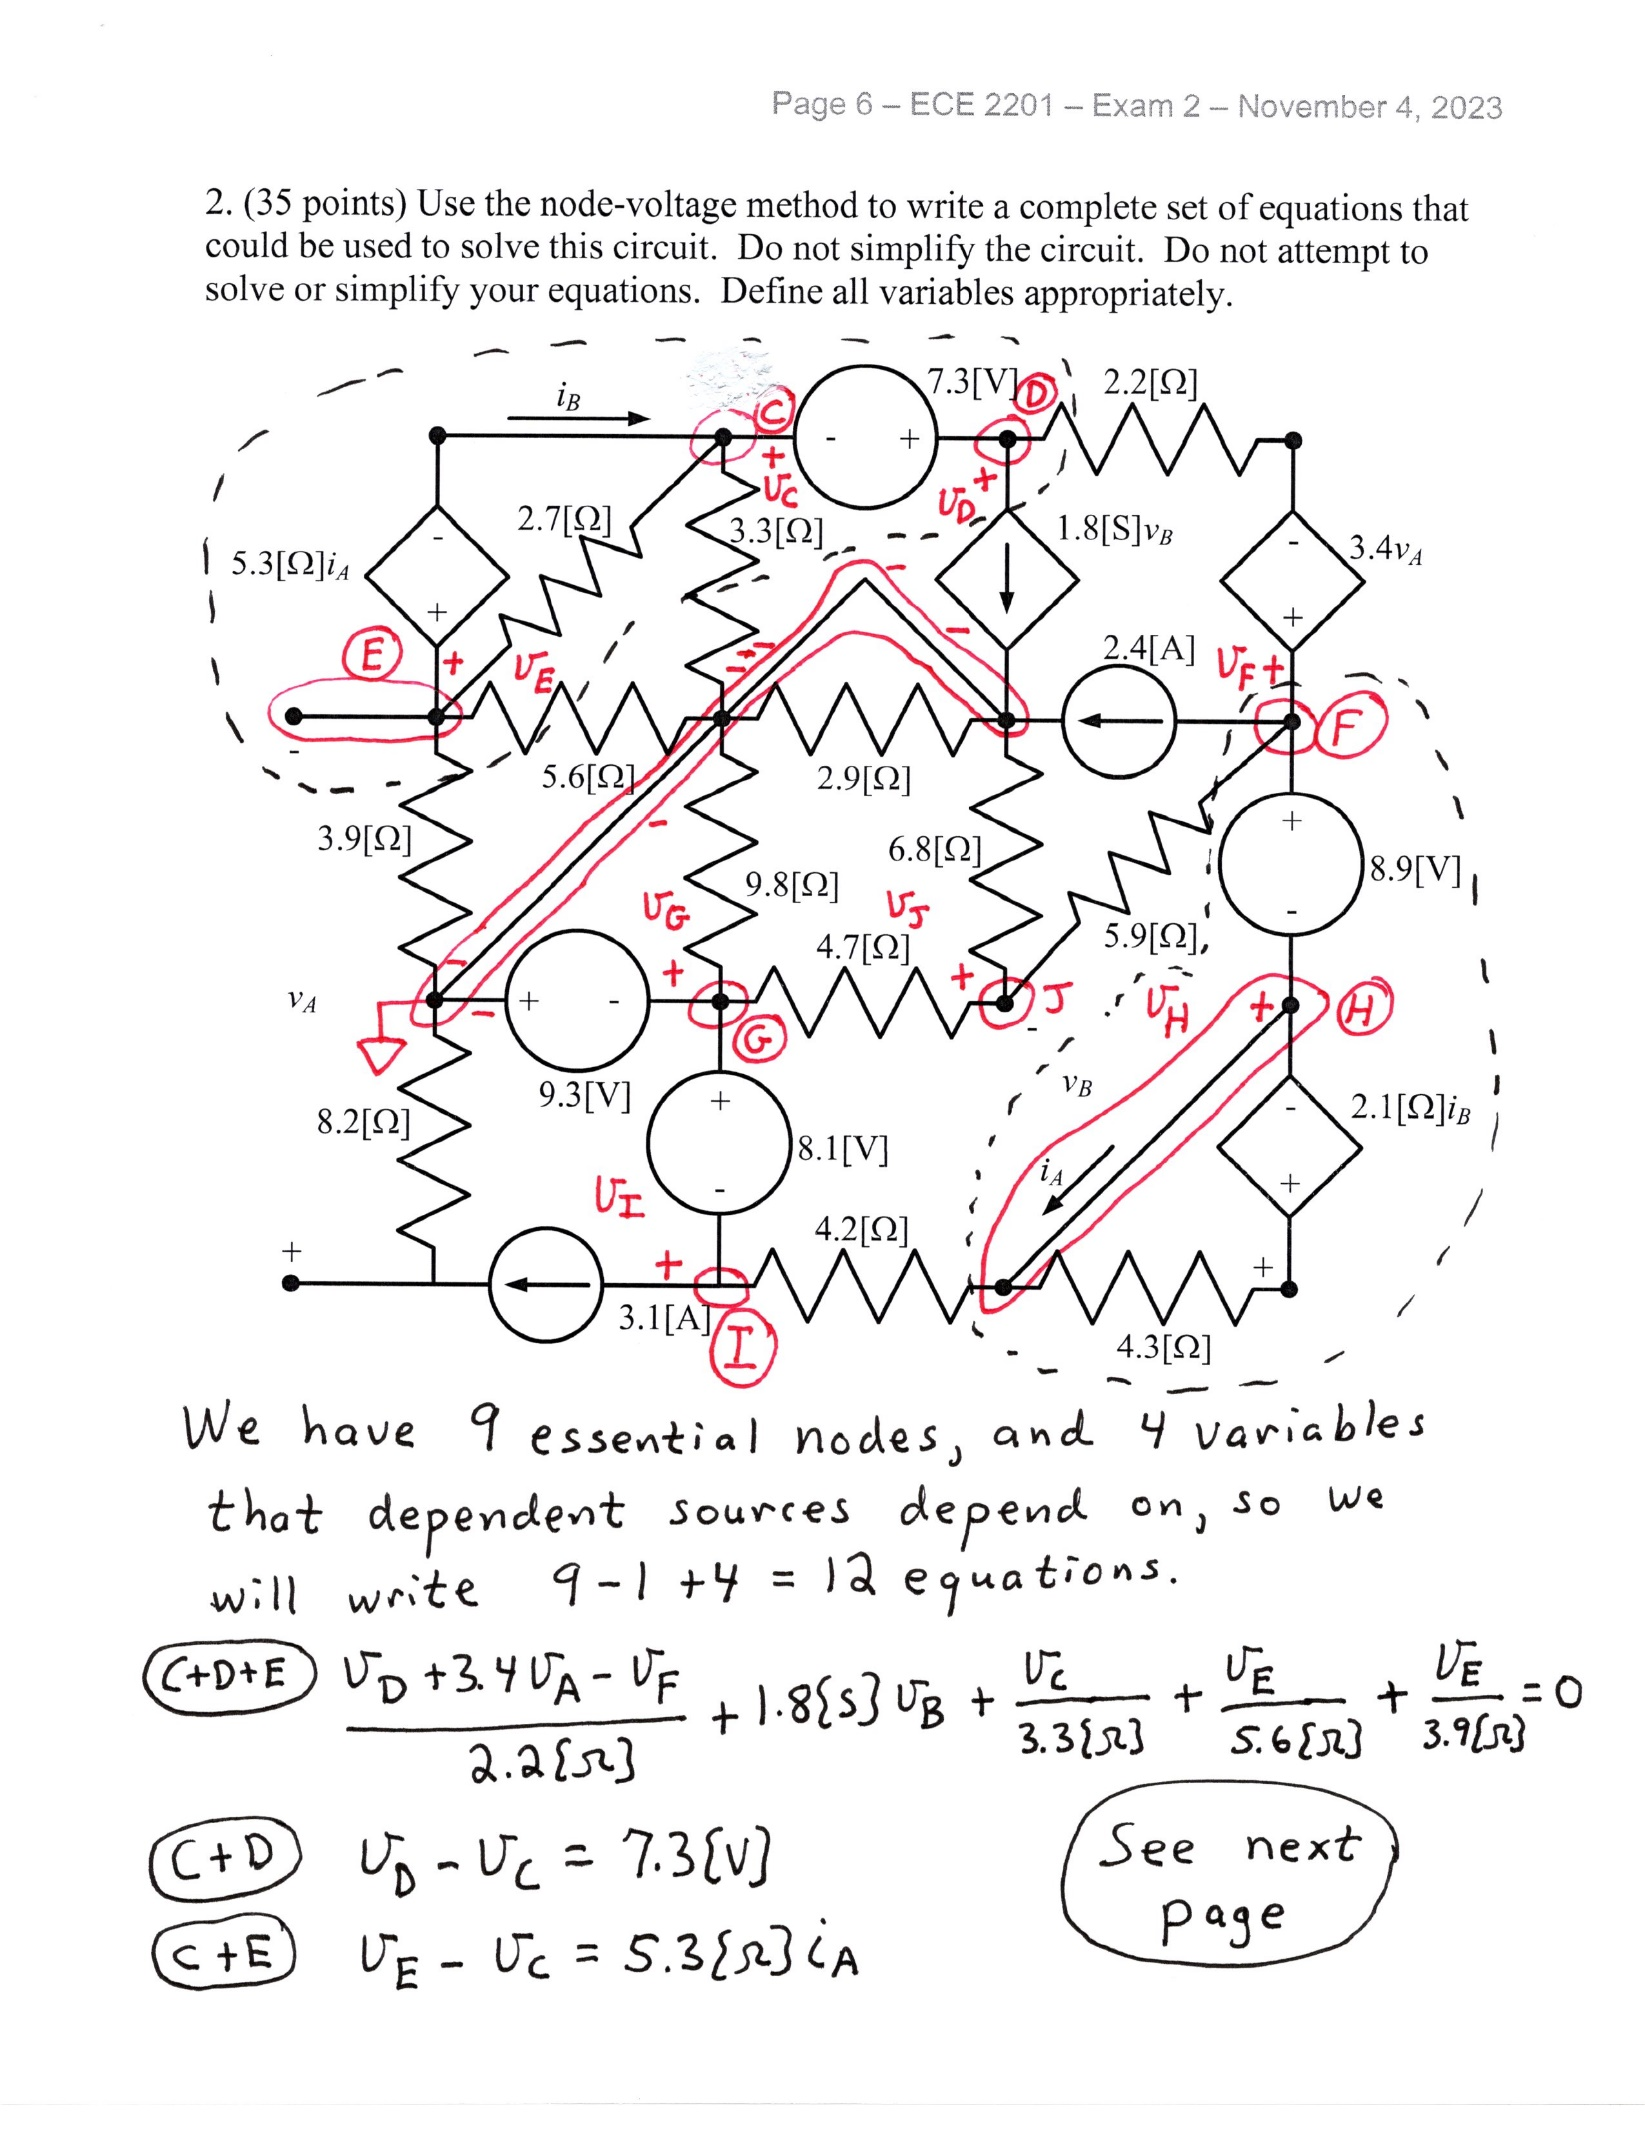 Page 6 – ECE 2201 – Exam 2 – November 4, 2023
2. (35 points) Use the node-voltage method to write a complete set of equations that
could be used to solve this circuit. Do not simplify the circuit. Do not attempt to
solve or simplify your equations. Define all variables appropriately.
iB
C
7.3[V]
D
2.2[Ω]
- +
+
vC
vD +
2.7[Ω]
3.3[Ω]
1.8[S]vB
5.3[Ω]iA
-
+
-
+
3.4vA
E
+
vE
2.4[A]
vF +
F
-
5.6[Ω]
2.9[Ω]
3.9[Ω]
6.8[Ω]
+
-
8.9[V]
9.8[Ω]
vG
vJ
4.7[Ω]
5.9[Ω]
vA
+ -
+
+
J
-
vH
+
H
G
9.3[V]
vB
8.2[Ω]
+
-
8.1[V]
-
+
2.1[Ω]iB
vI
iA
4.2[Ω]
+
+
+
3.1[A]
I
4.3[Ω]
We have 9 essential nodes, and 4 variables
that dependent sources depend on, so we
will write 9-1+4 = 12 equations.
C+D+E (vD + 3.4vA - vF)/2.2[Ω] + 1.8[S]vB + vC/3.3[Ω] + vE/5.6[Ω] + vE/3.9[Ω] = 0
C+D vD - vC = 7.3[V]
C+E vE - vC = 5.3[Ω]iA
See next
page